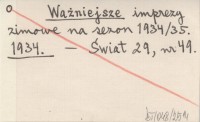 Ważniejsze imprezy
zimowe na sezon 1934/35.
1934. — Świat 29, nr 49.